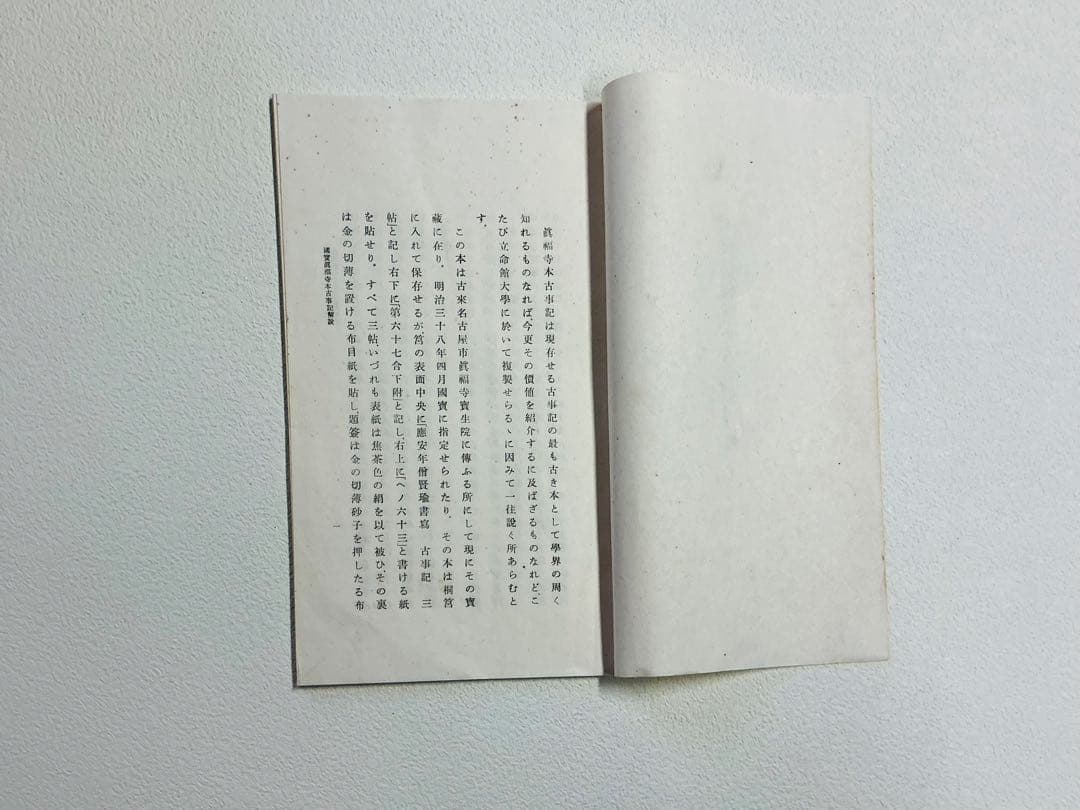 眞福寺本古事記は現存せる古事記の最も古き本として學界の周く
知れるものなれば、今更その價値を紹介するに及ばざるものなれど、こ
たび立命館大學に於いて複製せらるゝに因みて一往說く所あらむと
す。
この本は古來名古屋市眞福寺寶生院に傳ふる所にして現にその寶
藏に在り。明治三十八年四月國寶に指定せられたり。その本は桐筥
に入れて保存せるが、筥の表面中央に「應安年僧賢瑜書寫 古事記 三
帖」と記し右下に「第六十七合下附」と記し、右上に「ヘノ六十三」と書ける紙
を貼せり。すべて三帖いづれも表紙は焦茶色の絹を以て被ひ、その裏
は金の切薄を置ける布目紙を貼し、題簽は金の切薄砂子を押したる布
國寶眞福寺本古事記解說
一